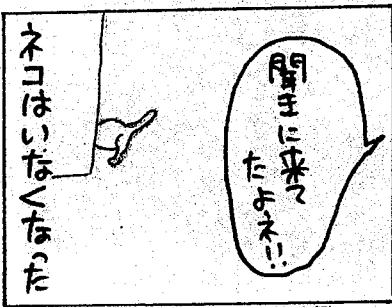 聞きに来て
たよネ!!
ネコはいなくなった